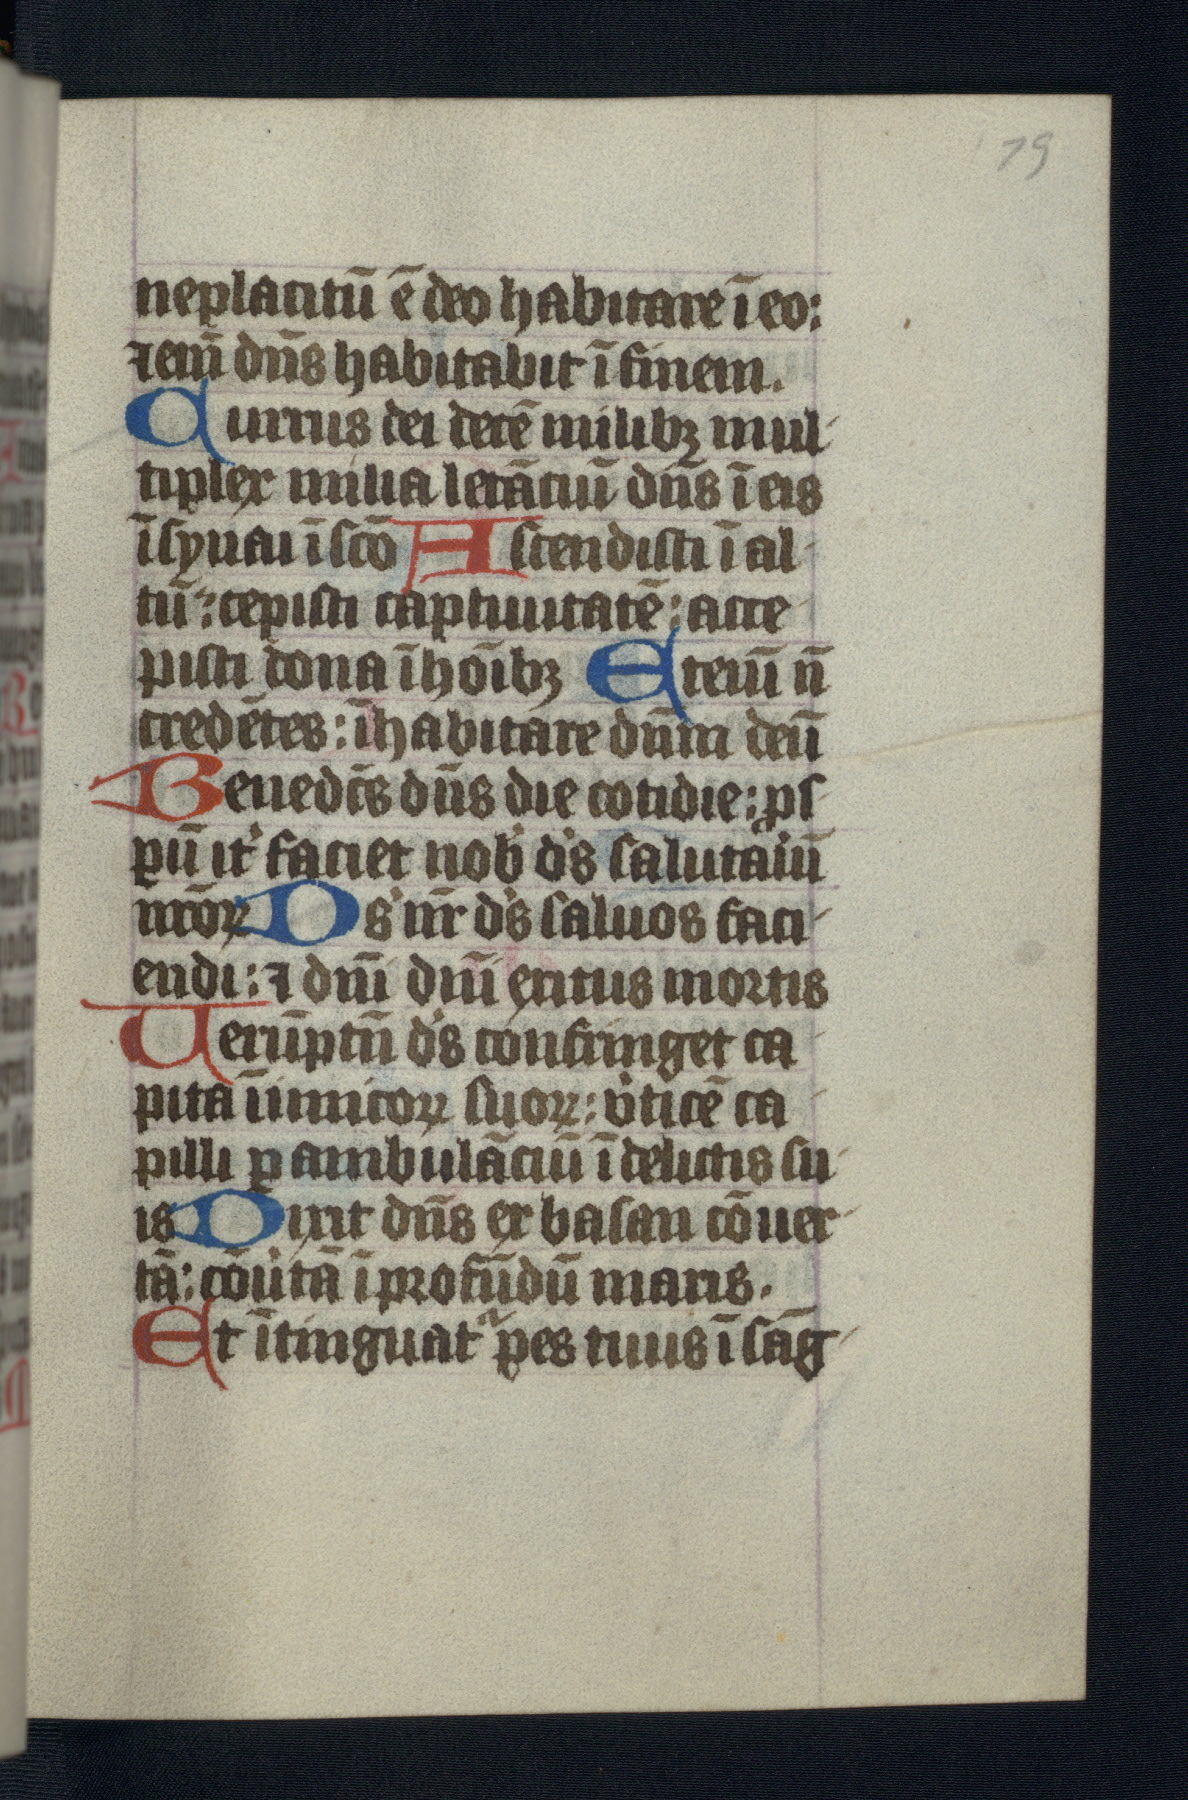 79
neplacitū ē deo habitare ī eo:
⁊eni̅ dn̄s habitabit ī finem.
Currus dei decē milibꝫ mul-
tiplex milia letāciū dn̄s ī eis
ī synai ī sc̄o Ascendisti ī al-
tū: cepisti captiuitatē: acce-
pisti dona ī hoībꝫ Eteni̅ n̄
credētes: īhabitare dn̄m deū
Benedc̄s dn̄s die cotidie: ꝓs-
pū it᾿ faciet nob᾿ d᾿s salutaīū
nr̄oꝝ Ds᾿ nr̄ d᾿s saluos faci-
endi: ⁊ dn̄i dn̄i exitus mortis
Uerūptn̄ d᾿s confringet ca-
pita īimicoꝝ suoꝝ: v᾿ticē ca-
pilli ꝑambulāciū ī delictis su-
is Dixit dn̄s ex basan cōuer-
tā: cōu᾿tā ī profūdū maris.
Et ītinguat᾿ pes tuus ī sāg-